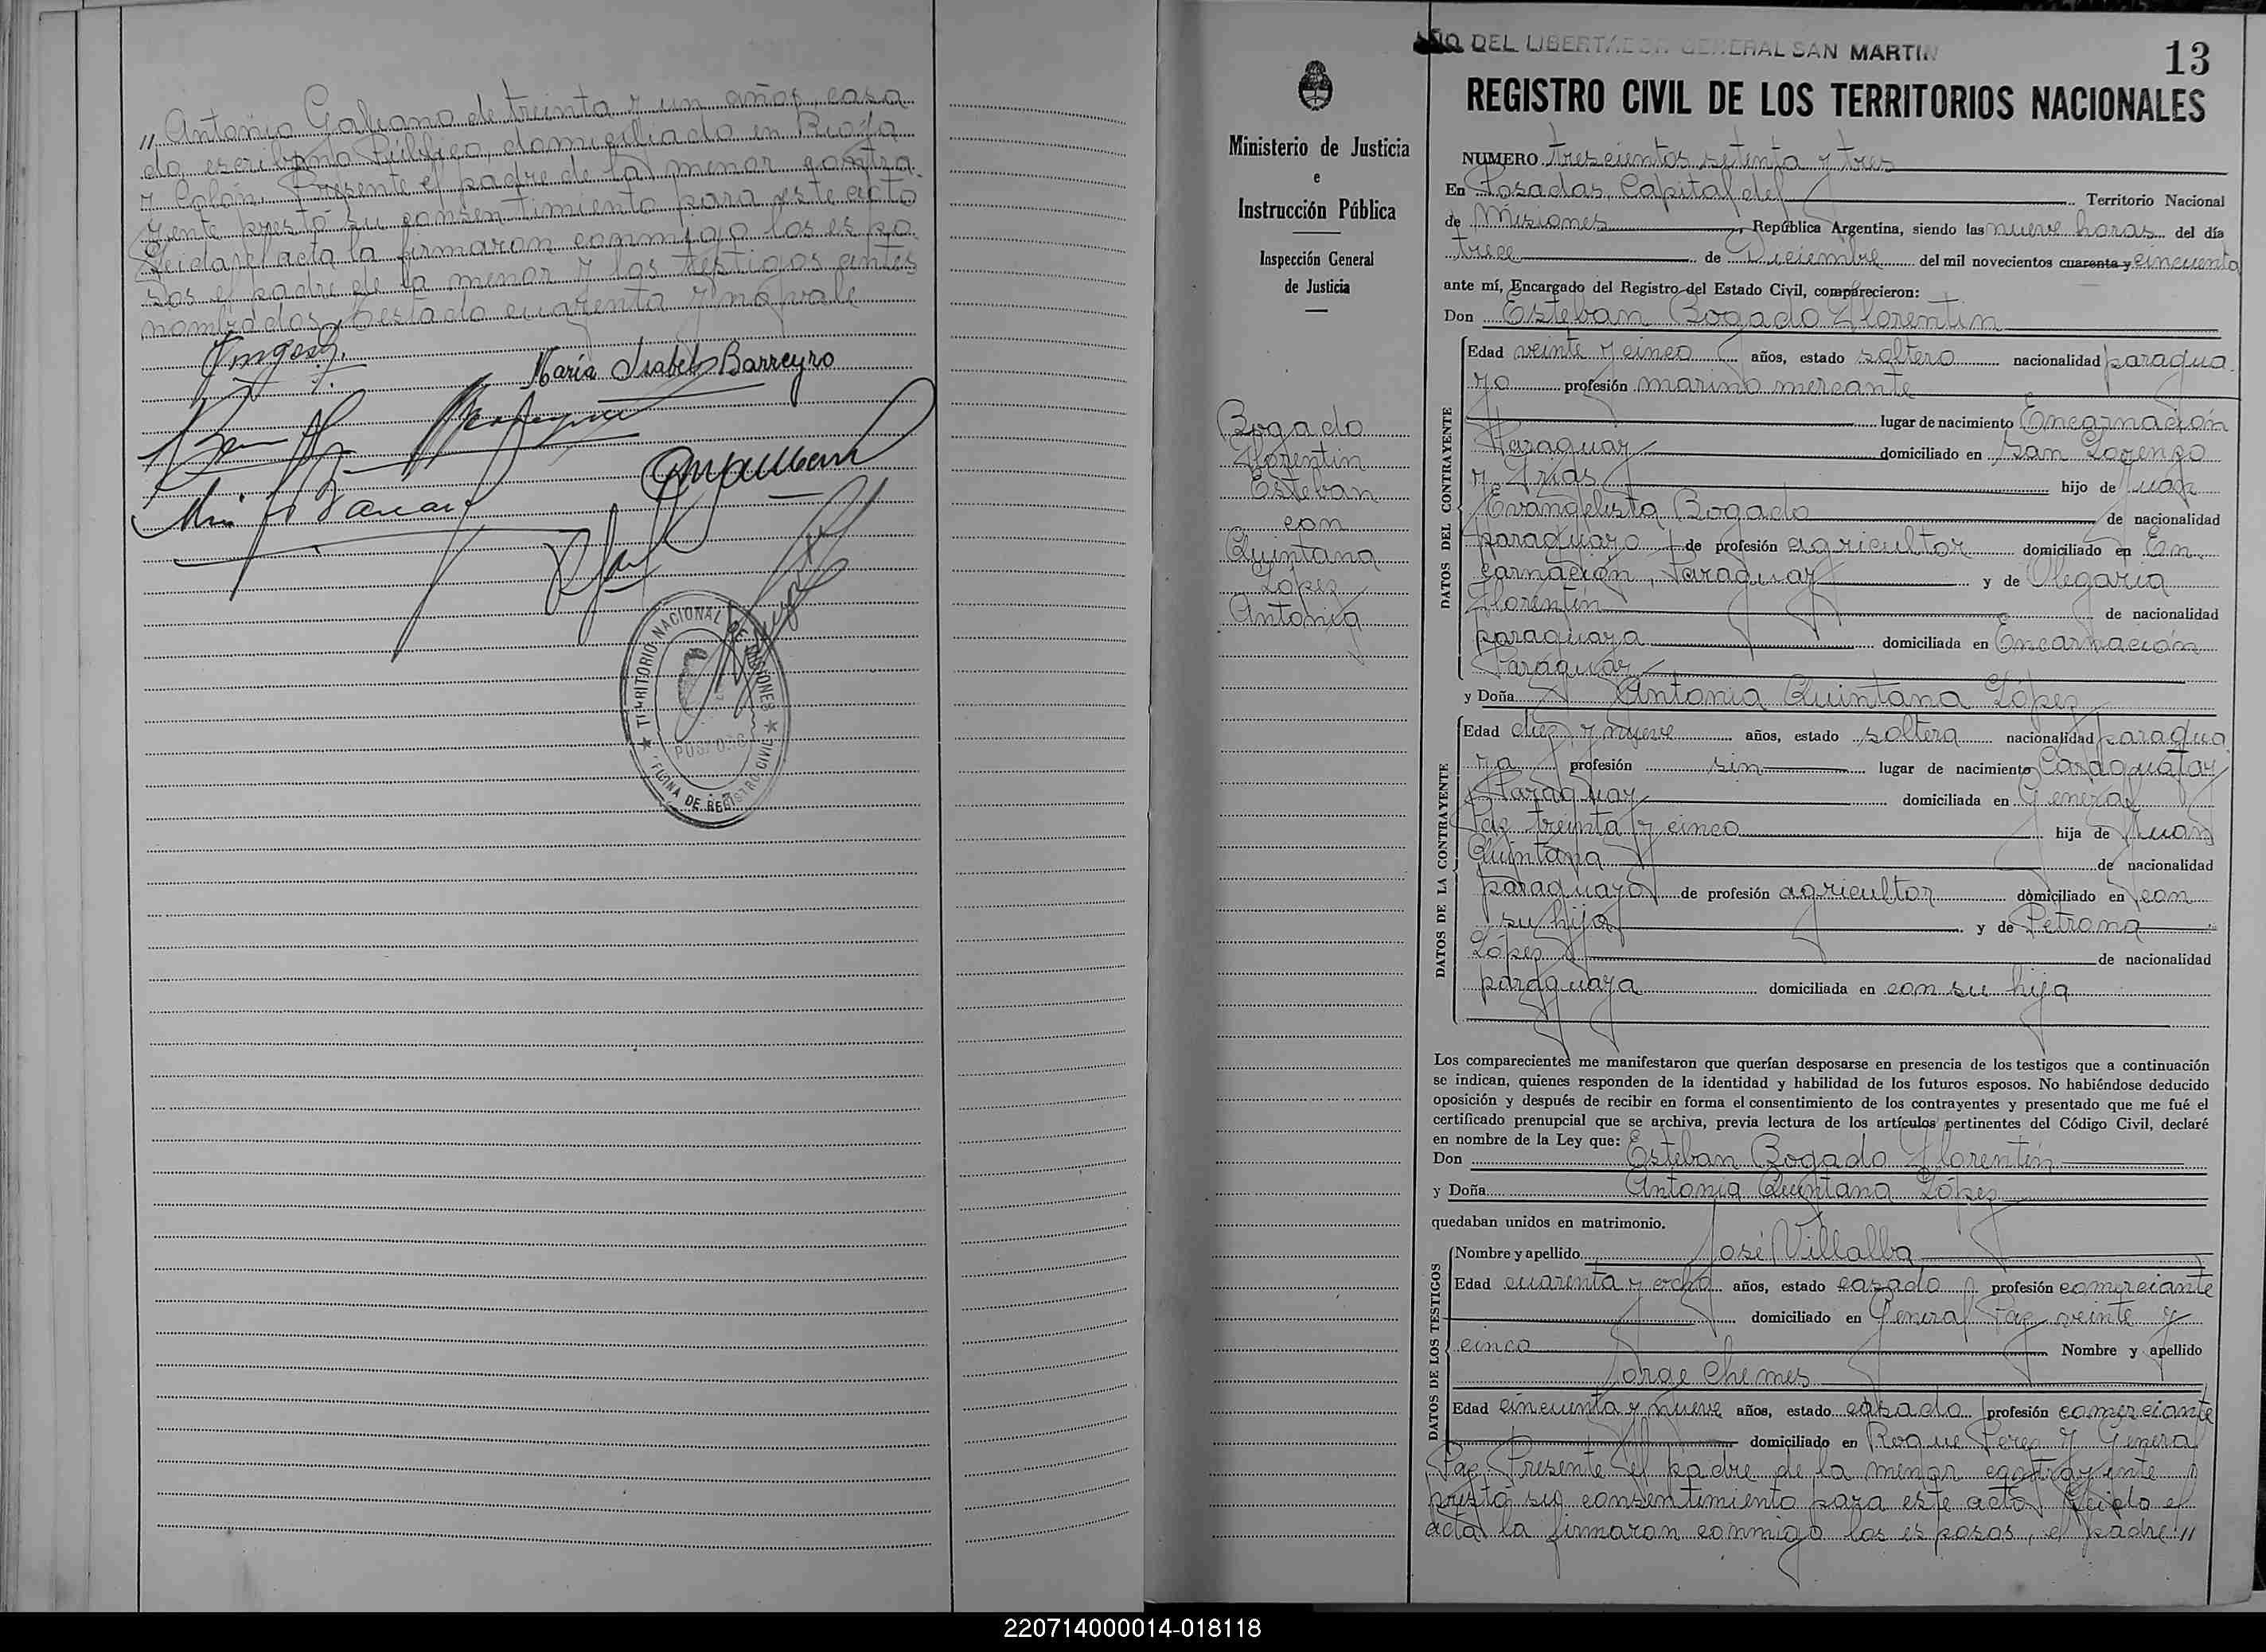 " Antonio Galeano de treinta y un años, casa
do, escribano Público, domiciliado en Rioja
y Colón. Presente el padre de la menor contra
yente prestó su consentimiento para este acto
Leida el acta la firmaron conmigo los espo
sos el padre de la menor y los testigos antes
nombrados. Testado cuarenta y no vale
María Isabel Barreyro
TERRITORIO NACIONAL DE MISIONES
POSADAS
OFICINA DE REGISTRO CIVIL
AÑO DEL LIBERTADOR GENERAL SAN MARTIN
13
REGISTRO CIVIL DE LOS TERRITORIOS NACIONALES
Ministerio de Justicia
e
Instrucción Pública
Inspección General
de Justicia
Bogado
Florentin
Esteban
con
Quintana
López
Antonia
NUMERO trescientos setenta y tres
En Posadas, Capital del Territorio Nacional
de Misiones, República Argentina, siendo las nueve horas del día
trece de Diciembre del mil novecientos cuarenta y cincuenta
ante mí, Encargado del Registro del Estado Civil, comparecieron:
Don Esteban Bogado Florentin
DATOS DEL CONTRAYENTE
Edad veinte y cinco años, estado soltero nacionalidad paragua
yo profesión marino mercante
lugar de nacimiento Encarnación
Paraguay domiciliado en San Lorenzo
y Frias hijo de Juan
Evangelista Bogado de nacionalidad
paraguayo de profesión agricultor domiciliado en En
carnación, Paraguay y de Olegaria
Florentin de nacionalidad
paraguaya domiciliada en Encarnación
Paraguay
y Doña Antonia Quintana López
DATOS DE LA CONTRAYENTE
Edad diez y nueve años, estado soltera nacionalidad paragua
ya profesión sin lugar de nacimiento Caraguatay
Paraguay domiciliada en General
Paz treinta y cinco hija de Juan
Quintana de nacionalidad
paraguayo de profesión agricultor domiciliado en con
su hija y de Petrona
López de nacionalidad
paraguaya domiciliada en con su hija
Los comparecientes me manifestaron que querían desposarse en presencia de los testigos que a continuación
se indican, quienes responden de la identidad y habilidad de los futuros esposos. No habiéndose deducido
oposición y después de recibir en forma el consentimiento de los contrayentes y presentado que me fué el
certificado prenupcial que se archiva, previa lectura de los artículos pertinentes del Código Civil, declaré
en nombre de la Ley que:
Don Esteban Bogado Florentin
y Doña Antonia Quintana López
quedaban unidos en matrimonio.
DATOS DE LOS TESTIGOS
Nombre y apellido José Villalba
Edad cuarenta y ocho años, estado casado profesión comerciante
domiciliado en General Paz veinte y
cinco Nombre y apellido
Jorge Chemes
Edad cincuenta y nueve años, estado casado profesión comerciante
domiciliado en Roque Perez y General
Paz. Presente el padre de la menor contrayente
prestó su consentimiento para este acto. Leida el
acta la firmaron conmigo los esposos, el padre "
220714000014-018118